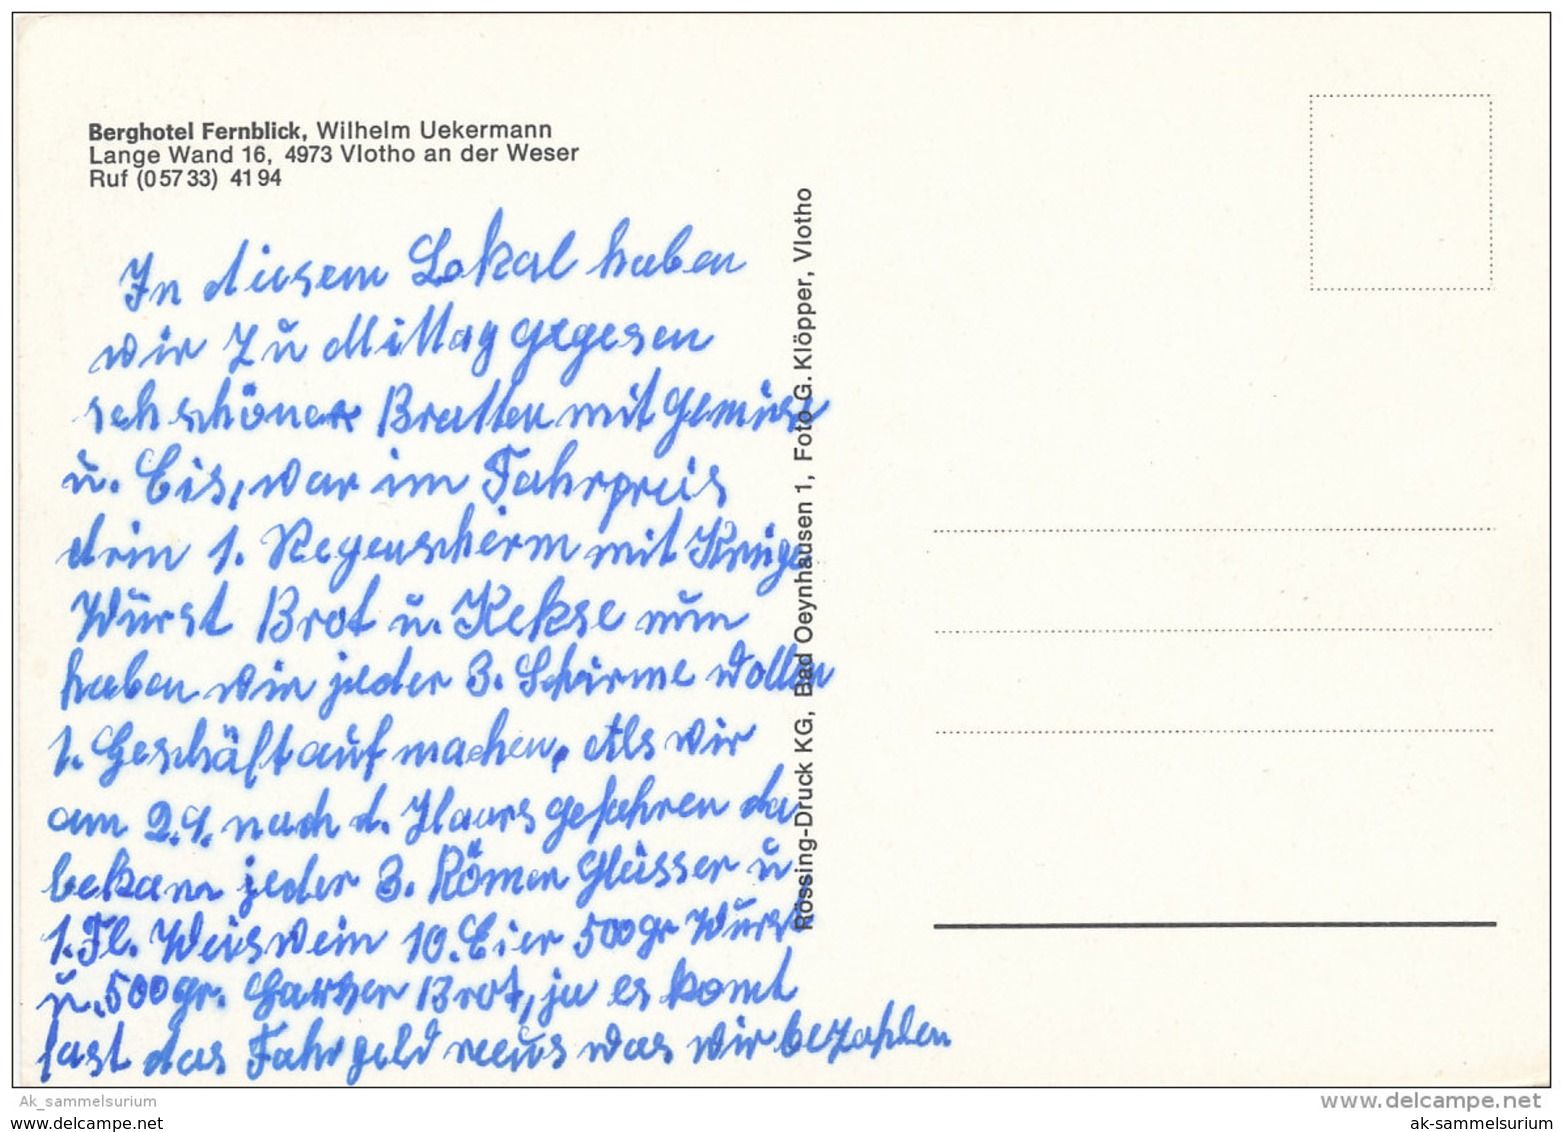 Berghotel Fernblick, Wilhelm Uekermann
Lange Wand 16, 4973 Vlotho an der Weser
Ruf (0 57 33) 41 94
In diesem Lokal haben
wir zu Mittag gegesen
seh schöner Bratten mit Gemüse
u. Eis, war im Fahrpreis
drin 1. Regenschirm mit
Wurst Brot u. Kekse nun
haben wir jeder 3. Schirme wollen
1. Geschäft auf machen. Als wir
am 2.9. nach d. Haars gefahren da
bekam jeder 3. Römer Glässer u
1. Fl. Weiswein 10. Eier 500 gr Wurst
u. 500 gr. Brot, ja es komt
fast das Fahrgeld raus was wir bezahlen
Rössing-Druck KG, Bad Oeynhausen 1, Foto G. Klöpper, Vlotho
Ak_sammelsurium
www.delcampe.net
www.delcampe.net
ak-sammelsurium